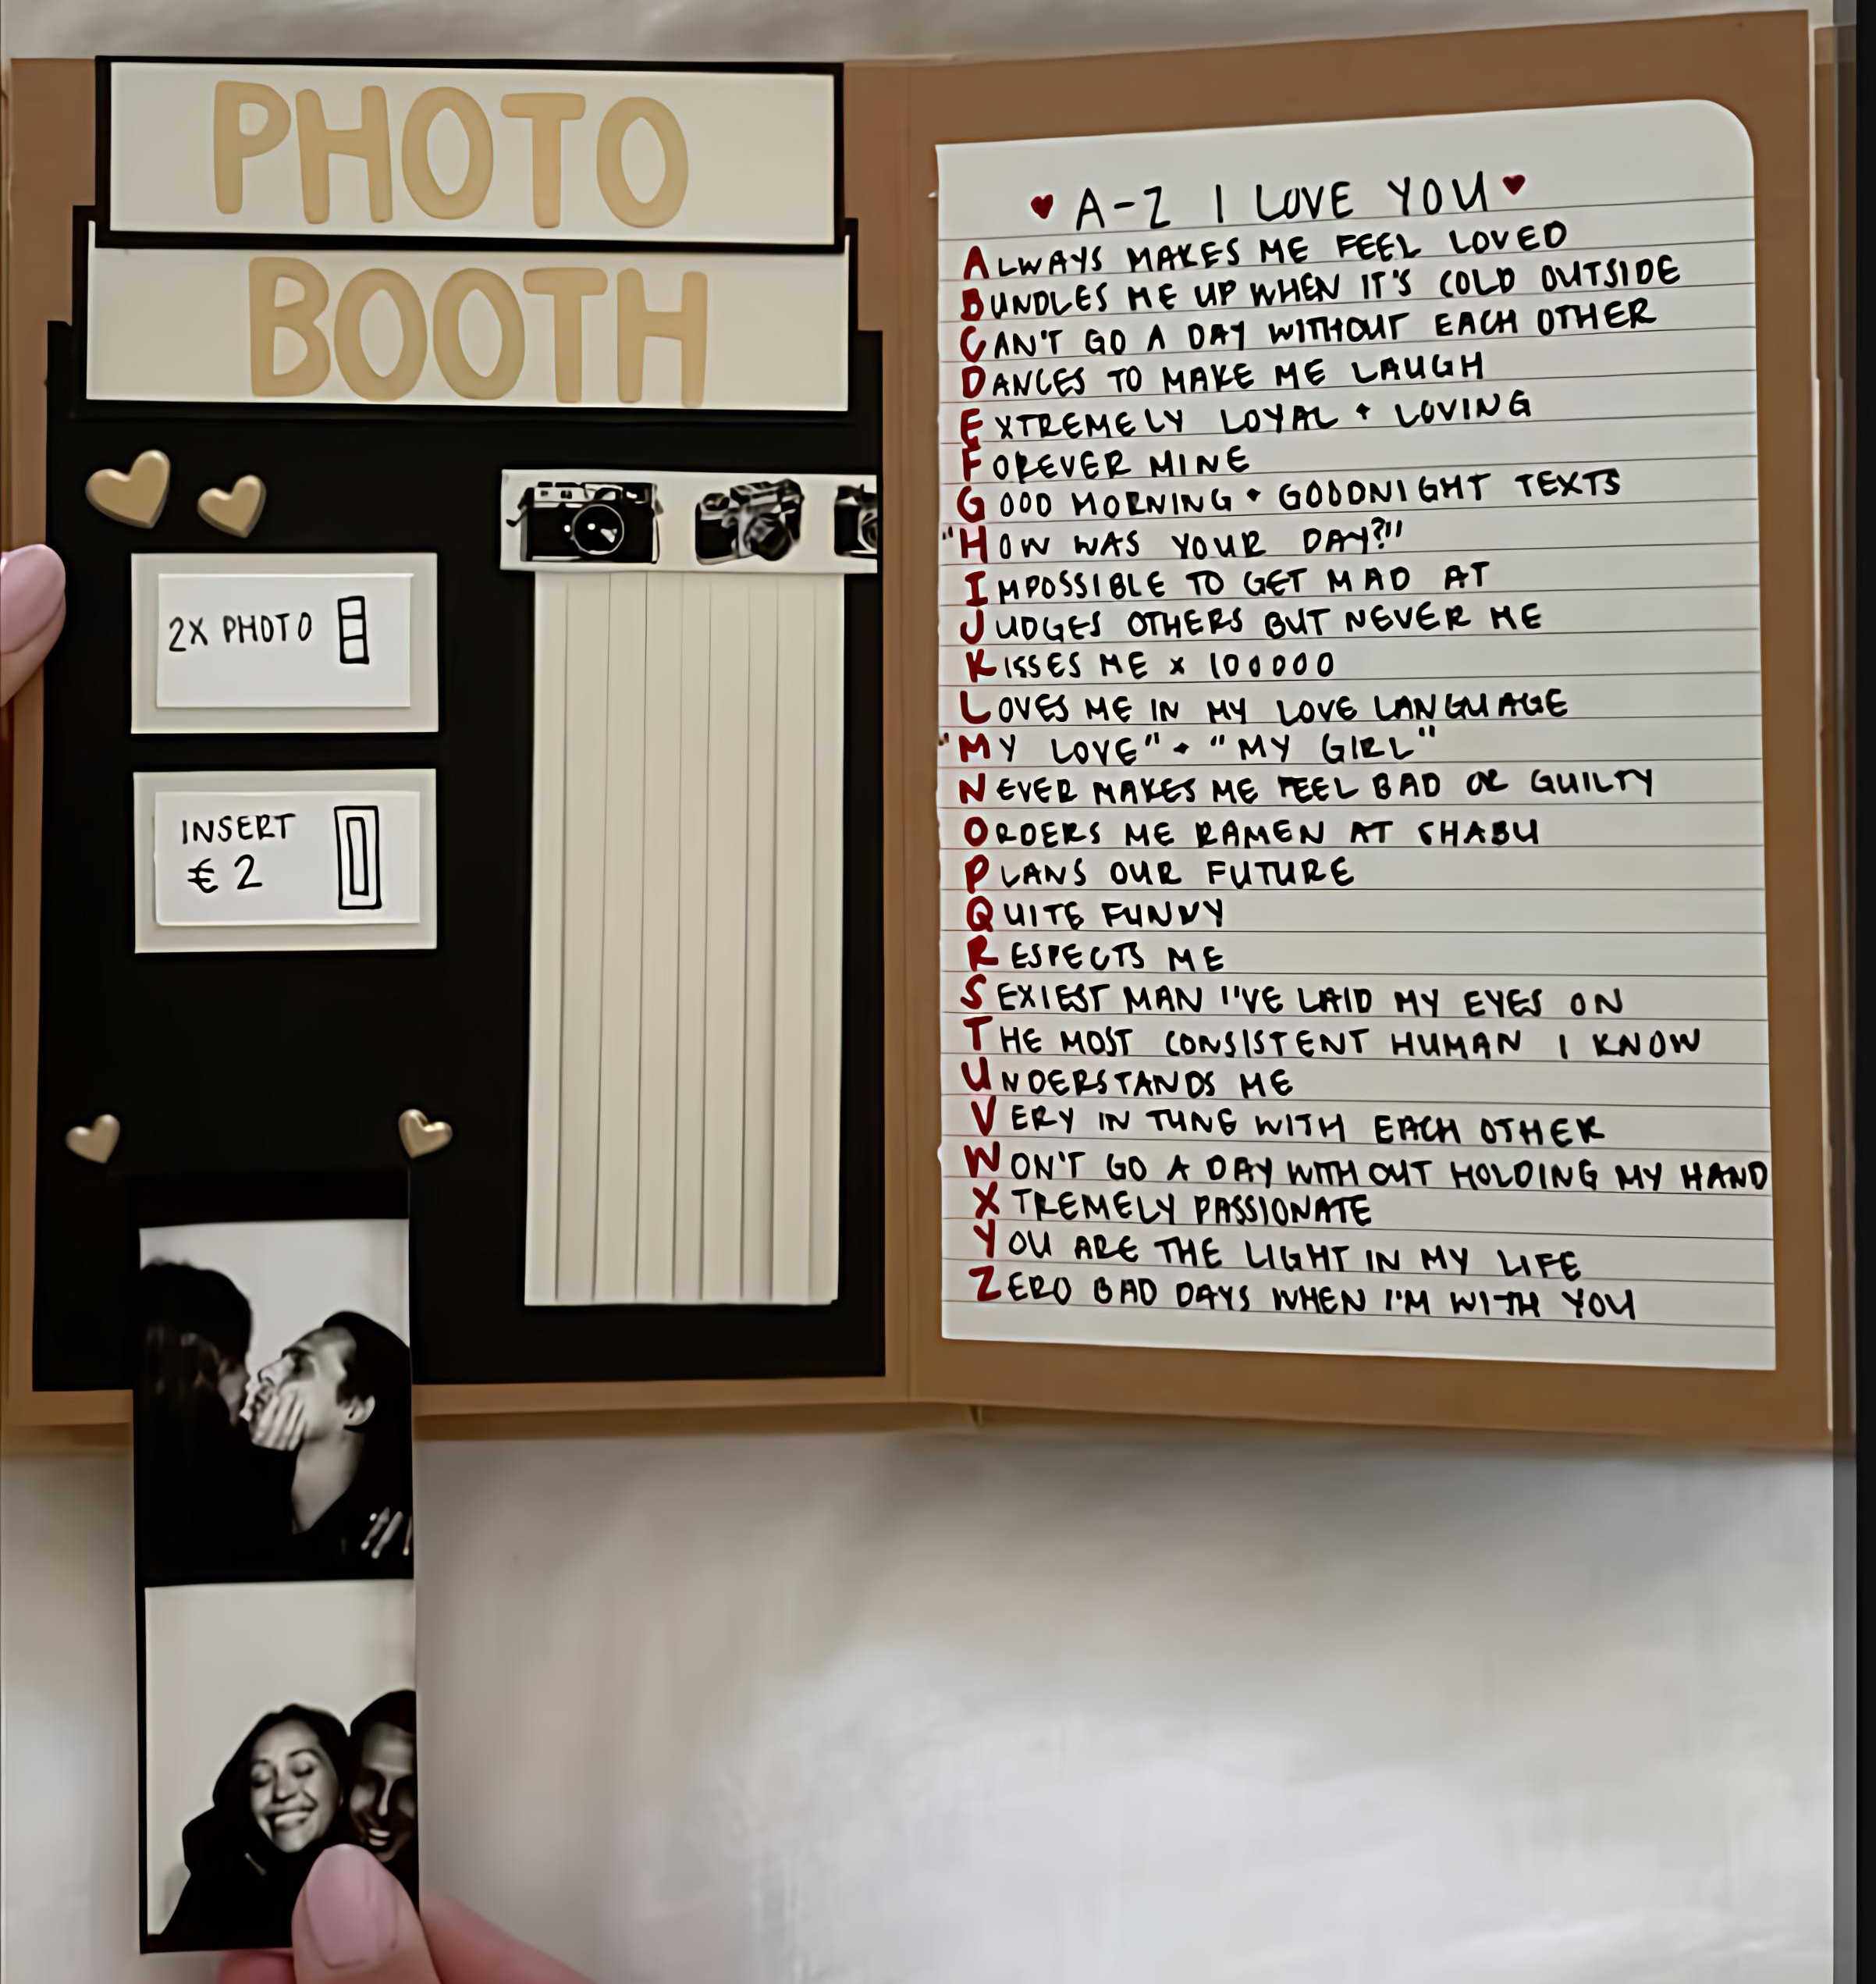 PHOTO
BOOTH
2X PHOTO
INSERT
€ 2
♥ A-Z I LOVE YOU ♥
ALWAYS MAKES ME FEEL LOVED
BUNDLES ME UP WHEN IT'S COLD OUTSIDE
CAN'T GO A DAY WITHOUT EACH OTHER
DANCES TO MAKE ME LAUGH
EXTREMELY LOYAL + LOVING
FOREVER MINE
GOOD MORNING + GOODNIGHT TEXTS
"HOW WAS YOUR DAY?"
IMPOSSIBLE TO GET MAD AT
JUDGES OTHERS BUT NEVER ME
KISSES ME x 100000
LOVES ME IN MY LOVE LANGUAGE
"MY LOVE" + "MY GIRL"
NEVER MAKES ME FEEL BAD OR GUILTY
ORDERS ME RAMEN AT SHABU
PLANS OUR FUTURE
QUITE FUNNY
RESPECTS ME
SEXIEST MAN I'VE LAID MY EYES ON
THE MOST CONSISTENT HUMAN I KNOW
UNDERSTANDS ME
VERY IN TUNE WITH EACH OTHER
WON'T GO A DAY WITHOUT HOLDING MY HAND
XTREMELY PASSIONATE
YOU ARE THE LIGHT IN MY LIFE
ZERO BAD DAYS WHEN I'M WITH YOU